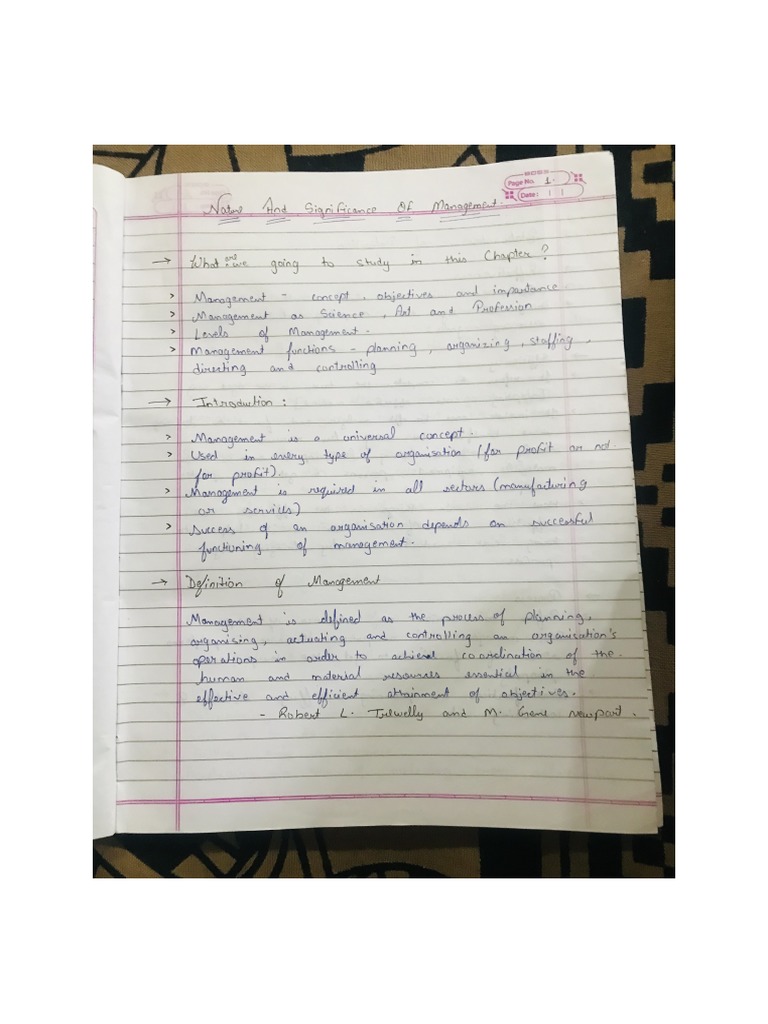 Page No. 1.
Date: | |
Nature And Significance Of Management.
→ What are we going to study in this Chapter?
> Management - concept, objectives and importance.
> Management as Science, Art and Profession
> Levels of Management.
> Management functions - planning, organizing, staffing,
directing and controlling
→ Introduction:
> Management is a universal concept.
> Used in every type of organisation (for profit or not
for profit).
> Management is required in all sectors (manufacturing
or services)
> Success of an organisation depends on successful
functioning of management.
→ Definition of Management
Management is defined as the process of planning,
organising, actuating and controlling an organisation's
operations in order to achieve coordination of the
human and material resources essential in the
effective and efficient attainment of objectives.
- Robert L. Trewelly and M. Gene newport.